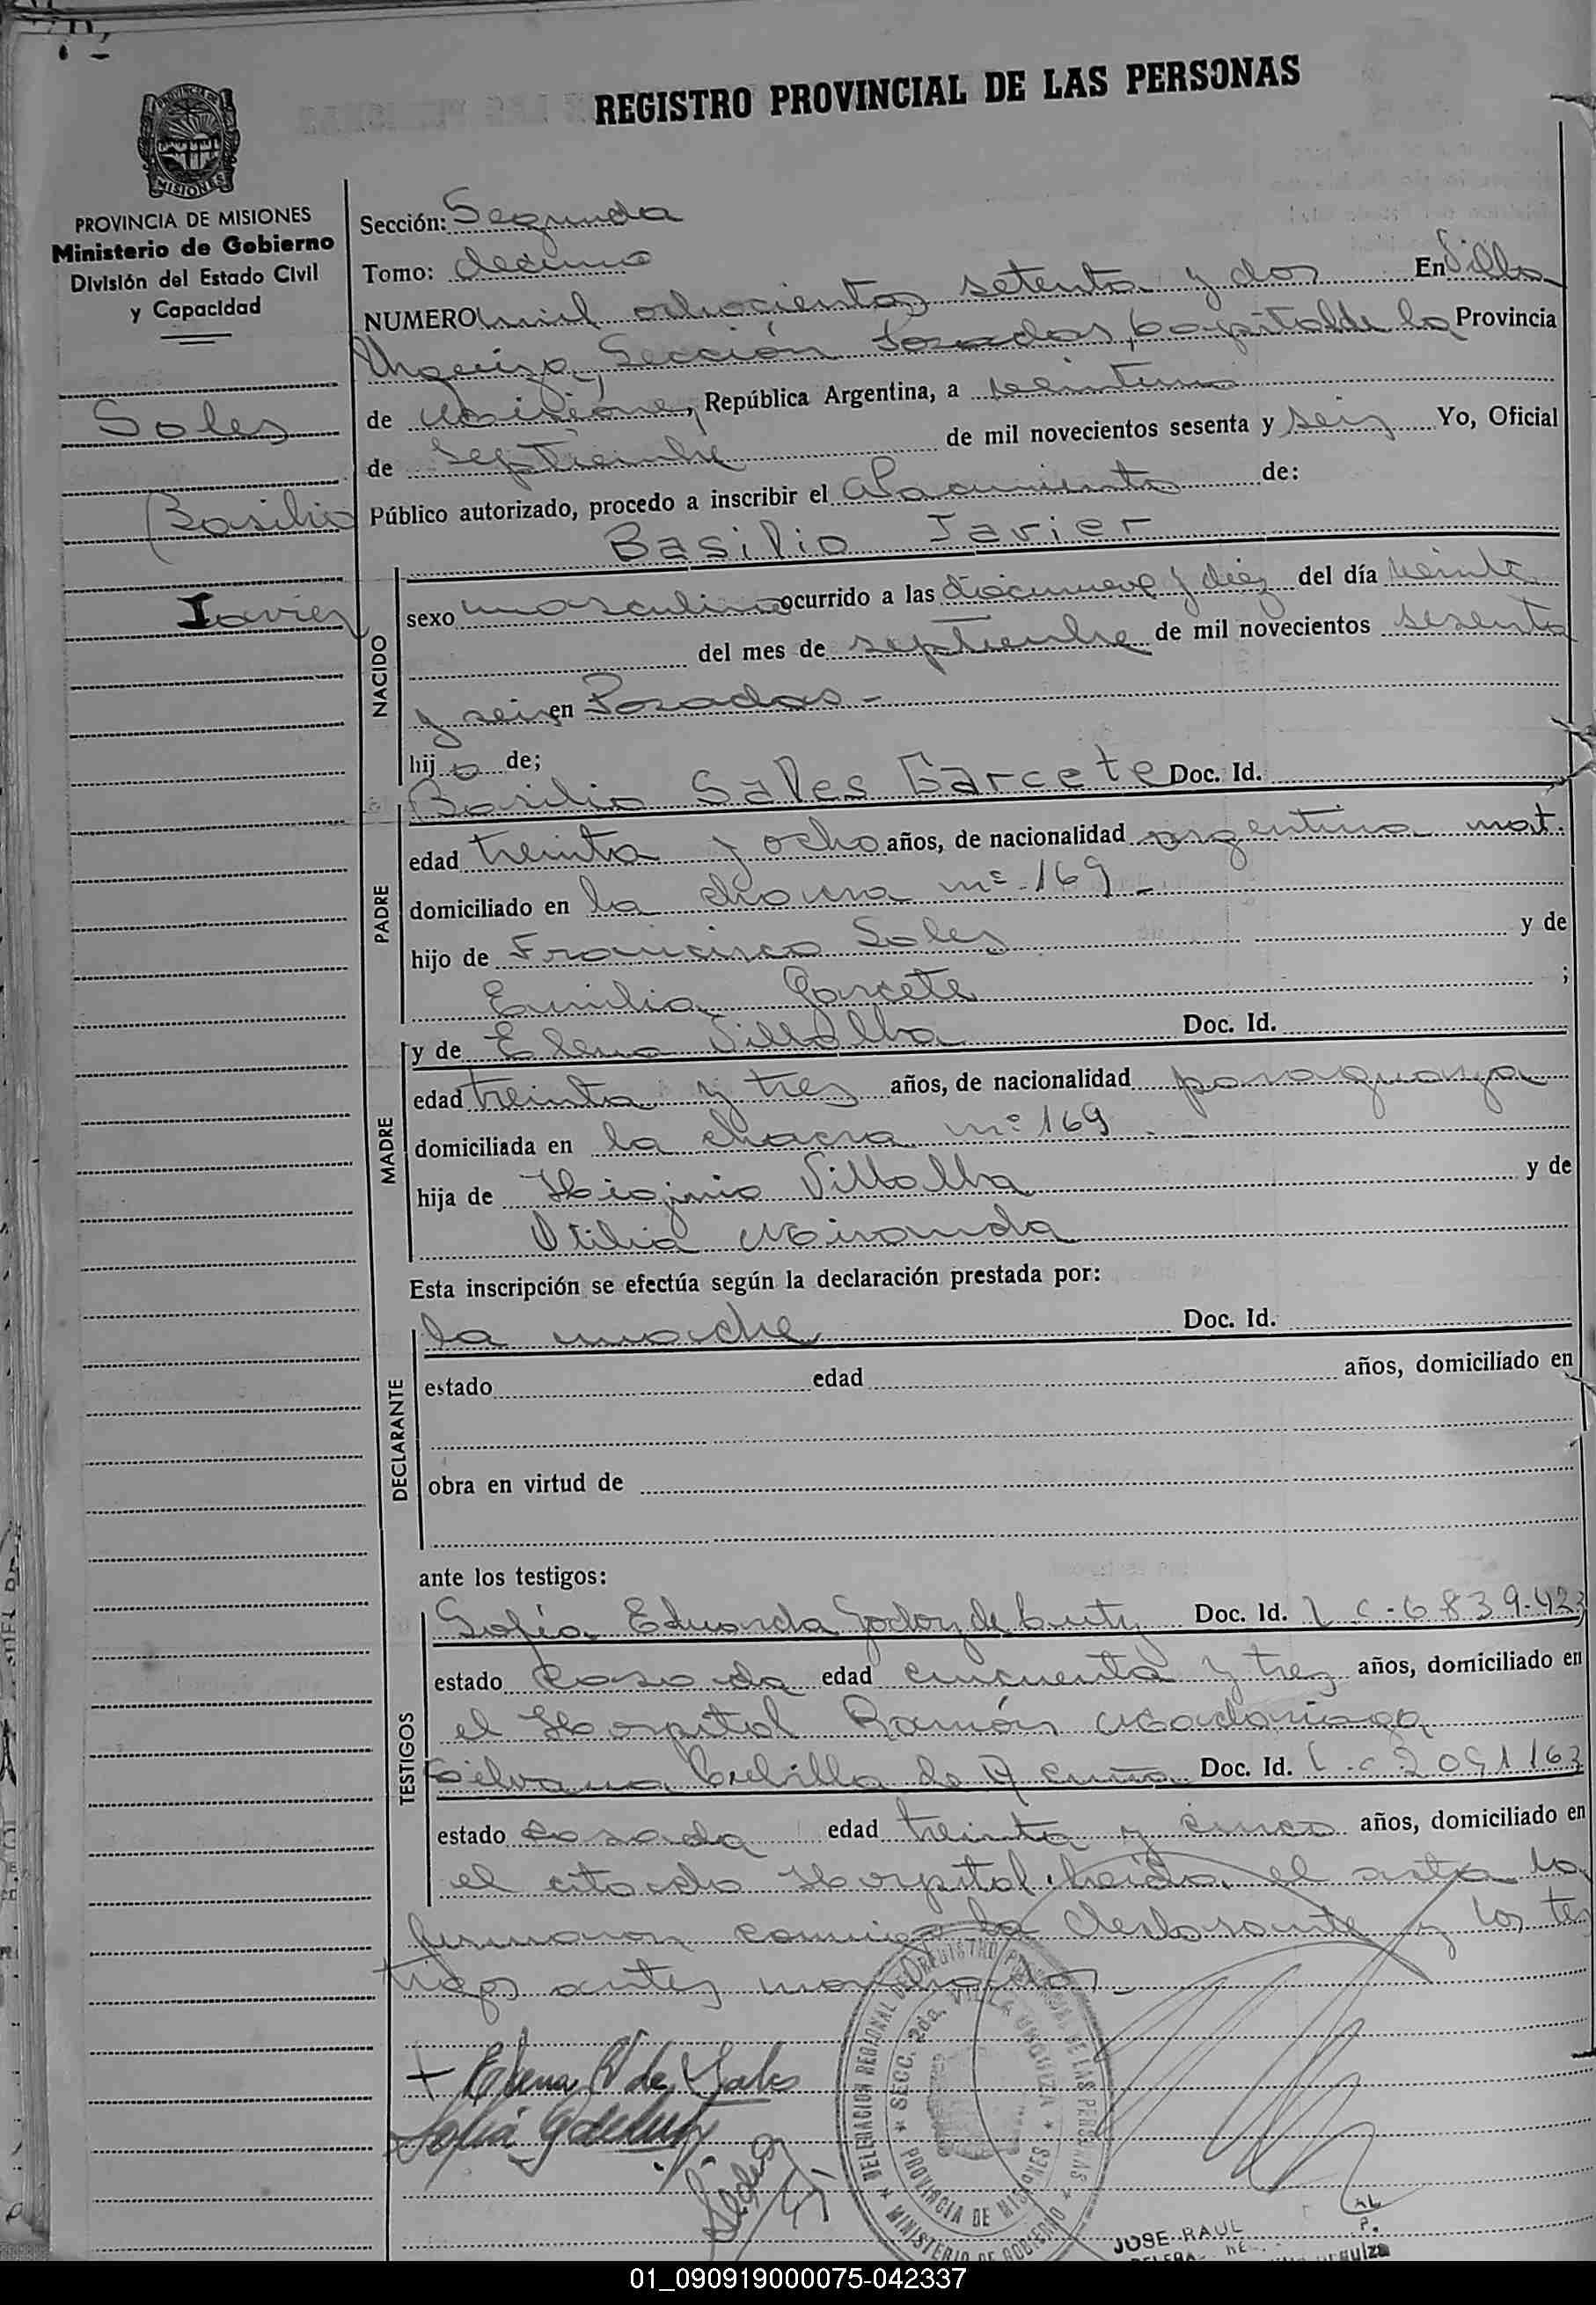 REGISTRO PROVINCIAL DE LAS PERSONAS
PROVINCIA DE MISIONES
PROVINCIA DE MISIONES
Ministerio de Gobierno
División del Estado Civil
y Capacidad
Sales
Basilio
Javier
Sección: Segunda
Tomo: decimo
NUMERO mil ochocientos setenta y dos En Villa
Urquiza, Sección Posadas, Capital de la Provincia
de Misiones, República Argentina, a veintiuno
de septiembre de mil novecientos sesenta y seis Yo, Oficial
Público autorizado, procedo a inscribir el Nacimiento de:
Basilio Javier
NACIDO
sexo masculino ocurrido a las diecinueve y diez del día veinte
del mes de septiembre de mil novecientos sesenta
y seis en Posadas -
hijo de;
PADRE
Basilio Sales Garcete Doc. Id.
edad treinta y ocho años, de nacionalidad argentina nat.
domiciliado en la chacra nº 169 -
hijo de Francisco Sales y de
Emilia Garcete ;
MADRE
y de Elena Villalba Doc. Id.
edad treinta y tres años, de nacionalidad paraguaya
domiciliada en la chacra nº 169 -
hija de Higinio Villalba y de
Otilia Miranda
Esta inscripción se efectúa según la declaración prestada por:
DECLARANTE
la madre Doc. Id.
estado edad años, domiciliado en
obra en virtud de
ante los testigos:
TESTIGOS
Sofía Eduarda Godoy de Doc. Id. L C - 6839.423
estado casada edad cincuenta y tres años, domiciliado en
el Hospital Ramón Madariaga
Silvana de Acuña Doc. Id. L. C 2091163
estado casada edad treinta y cinco años, domiciliado en
el citado Hospital. Leída el acta la
firmaron conmigo la declarante y los tes
tigos antes nombrados -
+ Elena V de Sales
Sofía G de
DELEGACION REGIONAL DEL REGISTRO PROVINCIAL DE LAS PERSONAS
SECC. 2da. VILLA URQUIZA
PROVINCIA DE MISIONES
MINISTERIO DE GOBIERNO
JOSE RAUL
01_090919000075-042337